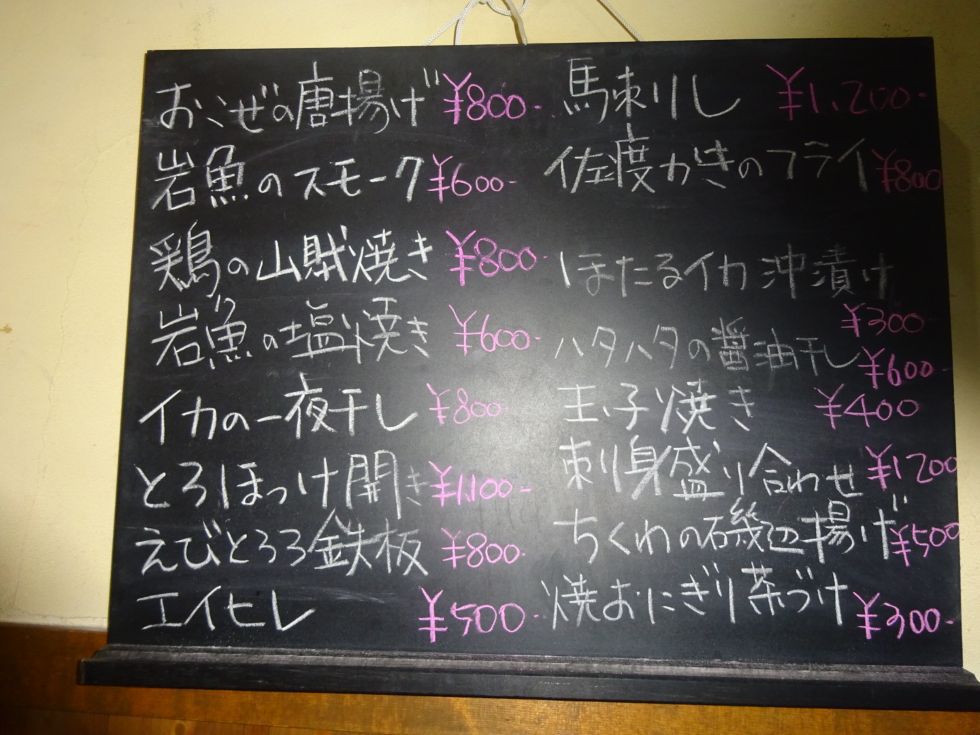 おこぜの唐揚げ ¥800-
岩魚のスモーク ¥600-
鶏の山賊焼き ¥800-
岩魚の塩焼き ¥600-
イカの一夜干し ¥800-
とろほっけ開き ¥1,100-
えびとろろ鉄板 ¥800-
エイヒレ ¥500-
馬刺りし ¥1,200-
佐渡かきのフライ ¥800
ほたるイカ沖漬け
¥300-
ハタハタの醤油干し ¥600-
玉子焼き ¥400
刺り身盛り合わせ ¥1200
ちくわの磯辺揚げ ¥500
焼おにぎり茶づけ ¥300-